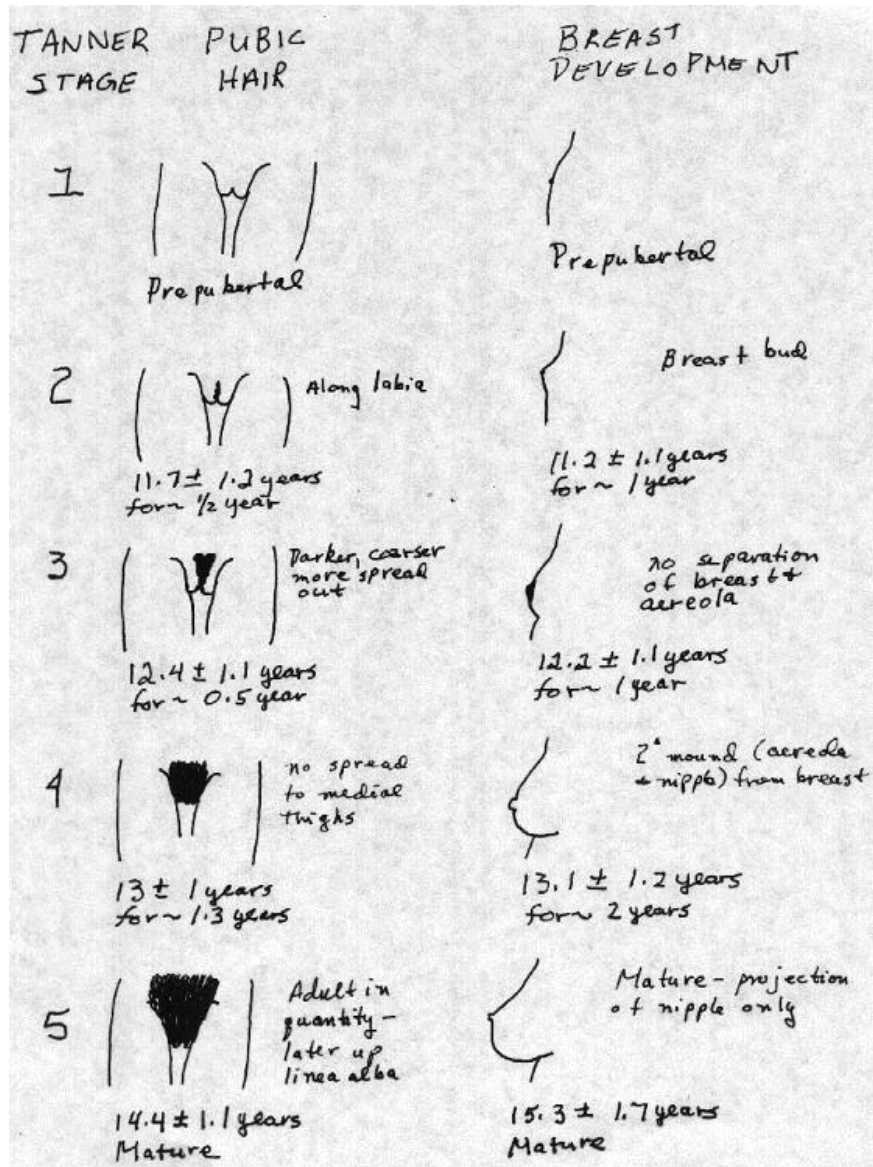 TANNER STAGE
PUBIC HAIR
BREAST DEVELOPMENT
1
Prepubertal
Prepubertal
2
Along labia
11.7 ± 1.2 years
for ~ 1/2 year
Breast bud
11.2 ± 1.1 years
for ~ 1 year
3
Darker, coarser
more spread
out
12.4 ± 1.1 years
for ~ 0.5 year
no separation
of breast +
aereola
12.2 ± 1.1 years
for ~ 1 year
4
no spread
to medial
thighs
13 ± 1 years
for ~ 1.3 years
2° mound (aereola
+ nipple) from breast
13.1 ± 1.2 years
for ~ 2 years
5
Adult in
quantity -
later up
linea alba
14.4 ± 1.1 years
Mature
Mature - projection
of nipple only
15.3 ± 1.7 years
Mature